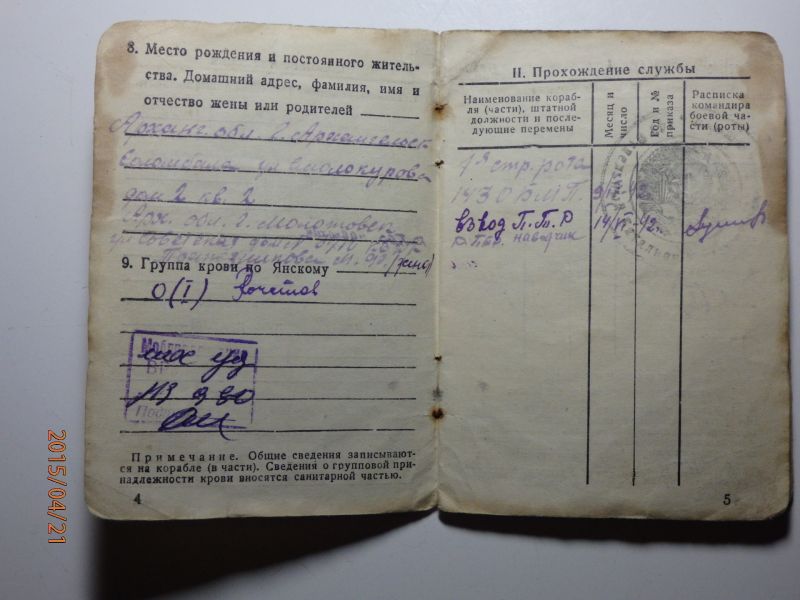 8. Место рождения и постоянного житель-
ства. Домашний адрес, фамилия, имя и
отчество жены или родителей
Арханг. обл. г. Архангельск
Соломбала ул Смолокурова
дом 2 кв. 2
Арх. обл. г. Молотовск
ул Советская дом №
М. (жена)
9. Группа крови по Янскому
0(I)
Примечание. Общие сведения записывают-
ся на корабле (в части). Сведения о групповой при-
надлежности крови вносятся санитарной частью.
4
II. Прохождение службы
Наименование кораб-
ля (части), штатной
должности и после-
дующие перемены
Месяц и
число
Год и №
приказа
Расписка
командира
боевой ча-
сти (роты)
1я стр. рота
взвод П.Т.Р 14/
наводчик
5
2015/04/21